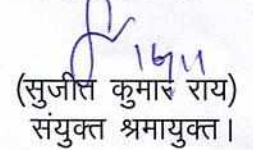 (सुजीत कुमार राय)
संयुक्त श्रमायुक्त।